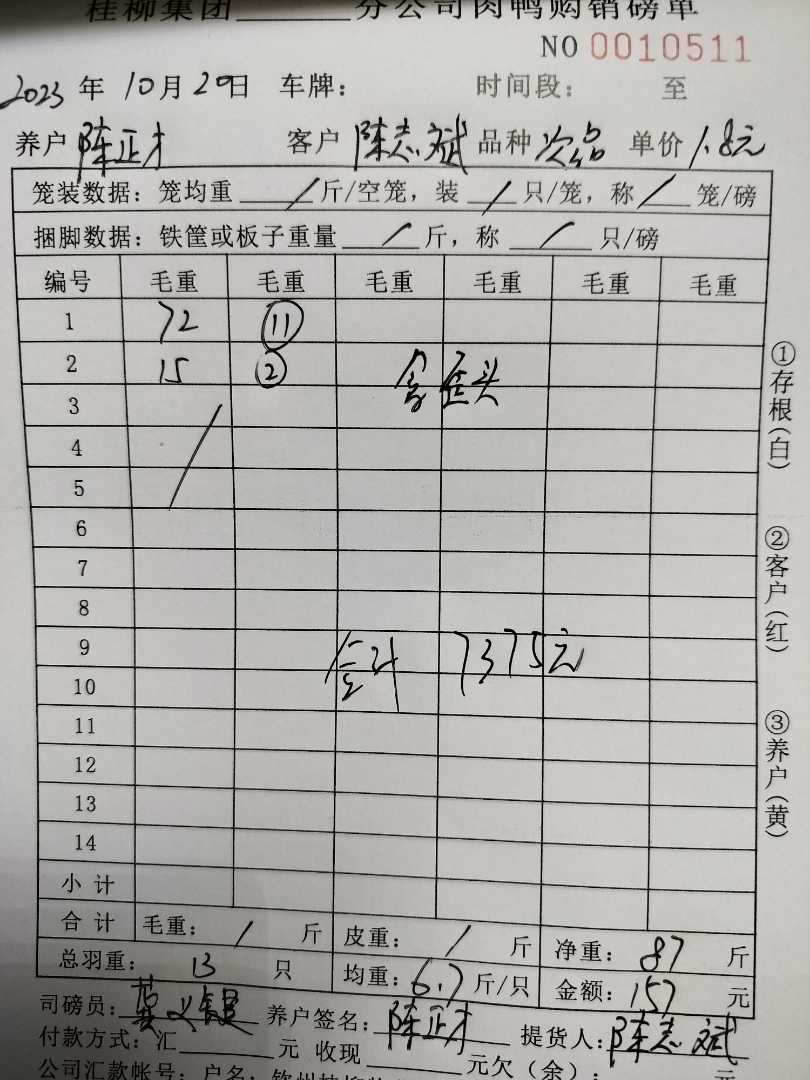 桂柳集团______分公司肉鸭购销磅单
NO 0010511
2023 年 10月20日 车牌: 时间段: 至
养户 陈正才 客户 陈志斌 品种 次品 单价 1.8元
笼装数据: 笼均重 / 斤/空笼, 装 / 只/笼, 称 / 笼/磅
捆脚数据: 铁筐或板子重量 / 斤, 称 / 只/磅
编号 毛重 毛重 毛重 毛重 毛重 毛重
1 72 ⑪
2 15 ② 含歪头
3
4
5
6
7
8
9 合计 7375元
10
11
12
13
14
小 计
合 计 毛重: / 斤 皮重: / 斤 净重: 87 斤
总羽重: 13 只 均重: 6.7 斤/只 金额: 157 元
司磅员: 养户签名: 陈正才 提货人: 陈志斌
付款方式: 汇______元 收现______元欠(余): 元
公司汇款帐号: 户名:
①存根(白)
②客户(红)
③养户(黄)